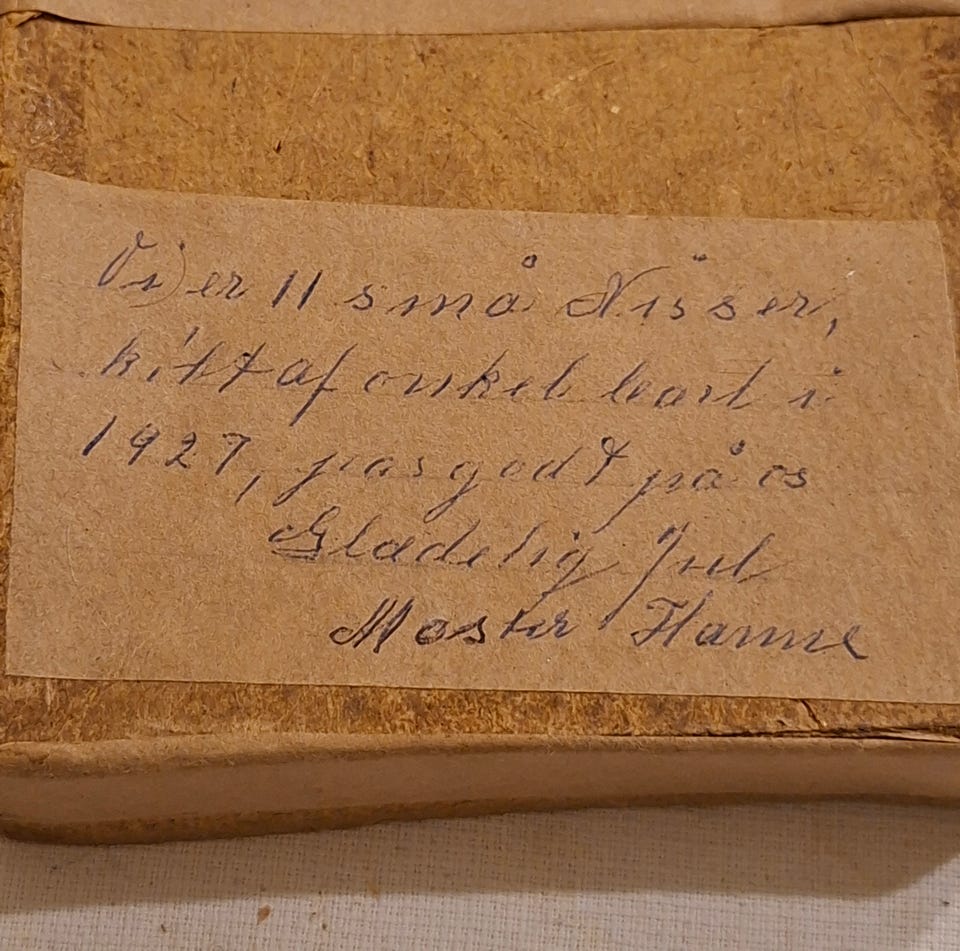 Vi er 11 små Nisser,
klipt af onkel Carl i
1927, pas godt på os
Glædelig Jul
Moster Hanne